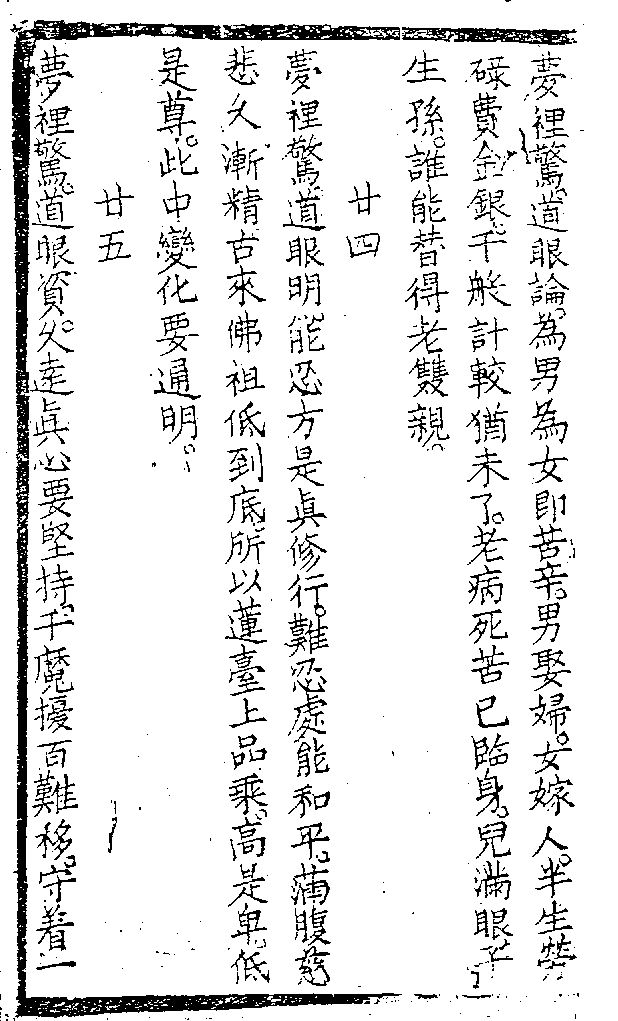 夢裡驚。道眼論。為男為女即苦辛。男娶婦。女嫁人。半生勞
碌費金銀。千般計較猶未了。老病死苦已臨身。兒滿眼。子
生孫。誰能替得老雙親。
廿四
夢裡驚。道眼明。能忍方是真修行。難忍處能和平。滿腹慈
悲久漸精。古來佛祖低到底。所以蓮臺上品乘。高是卑。低
是尊。此中變化要通明。
廿五
夢裡驚。道眼資。久遠真心要堅持。千魔擾百難移。守着一